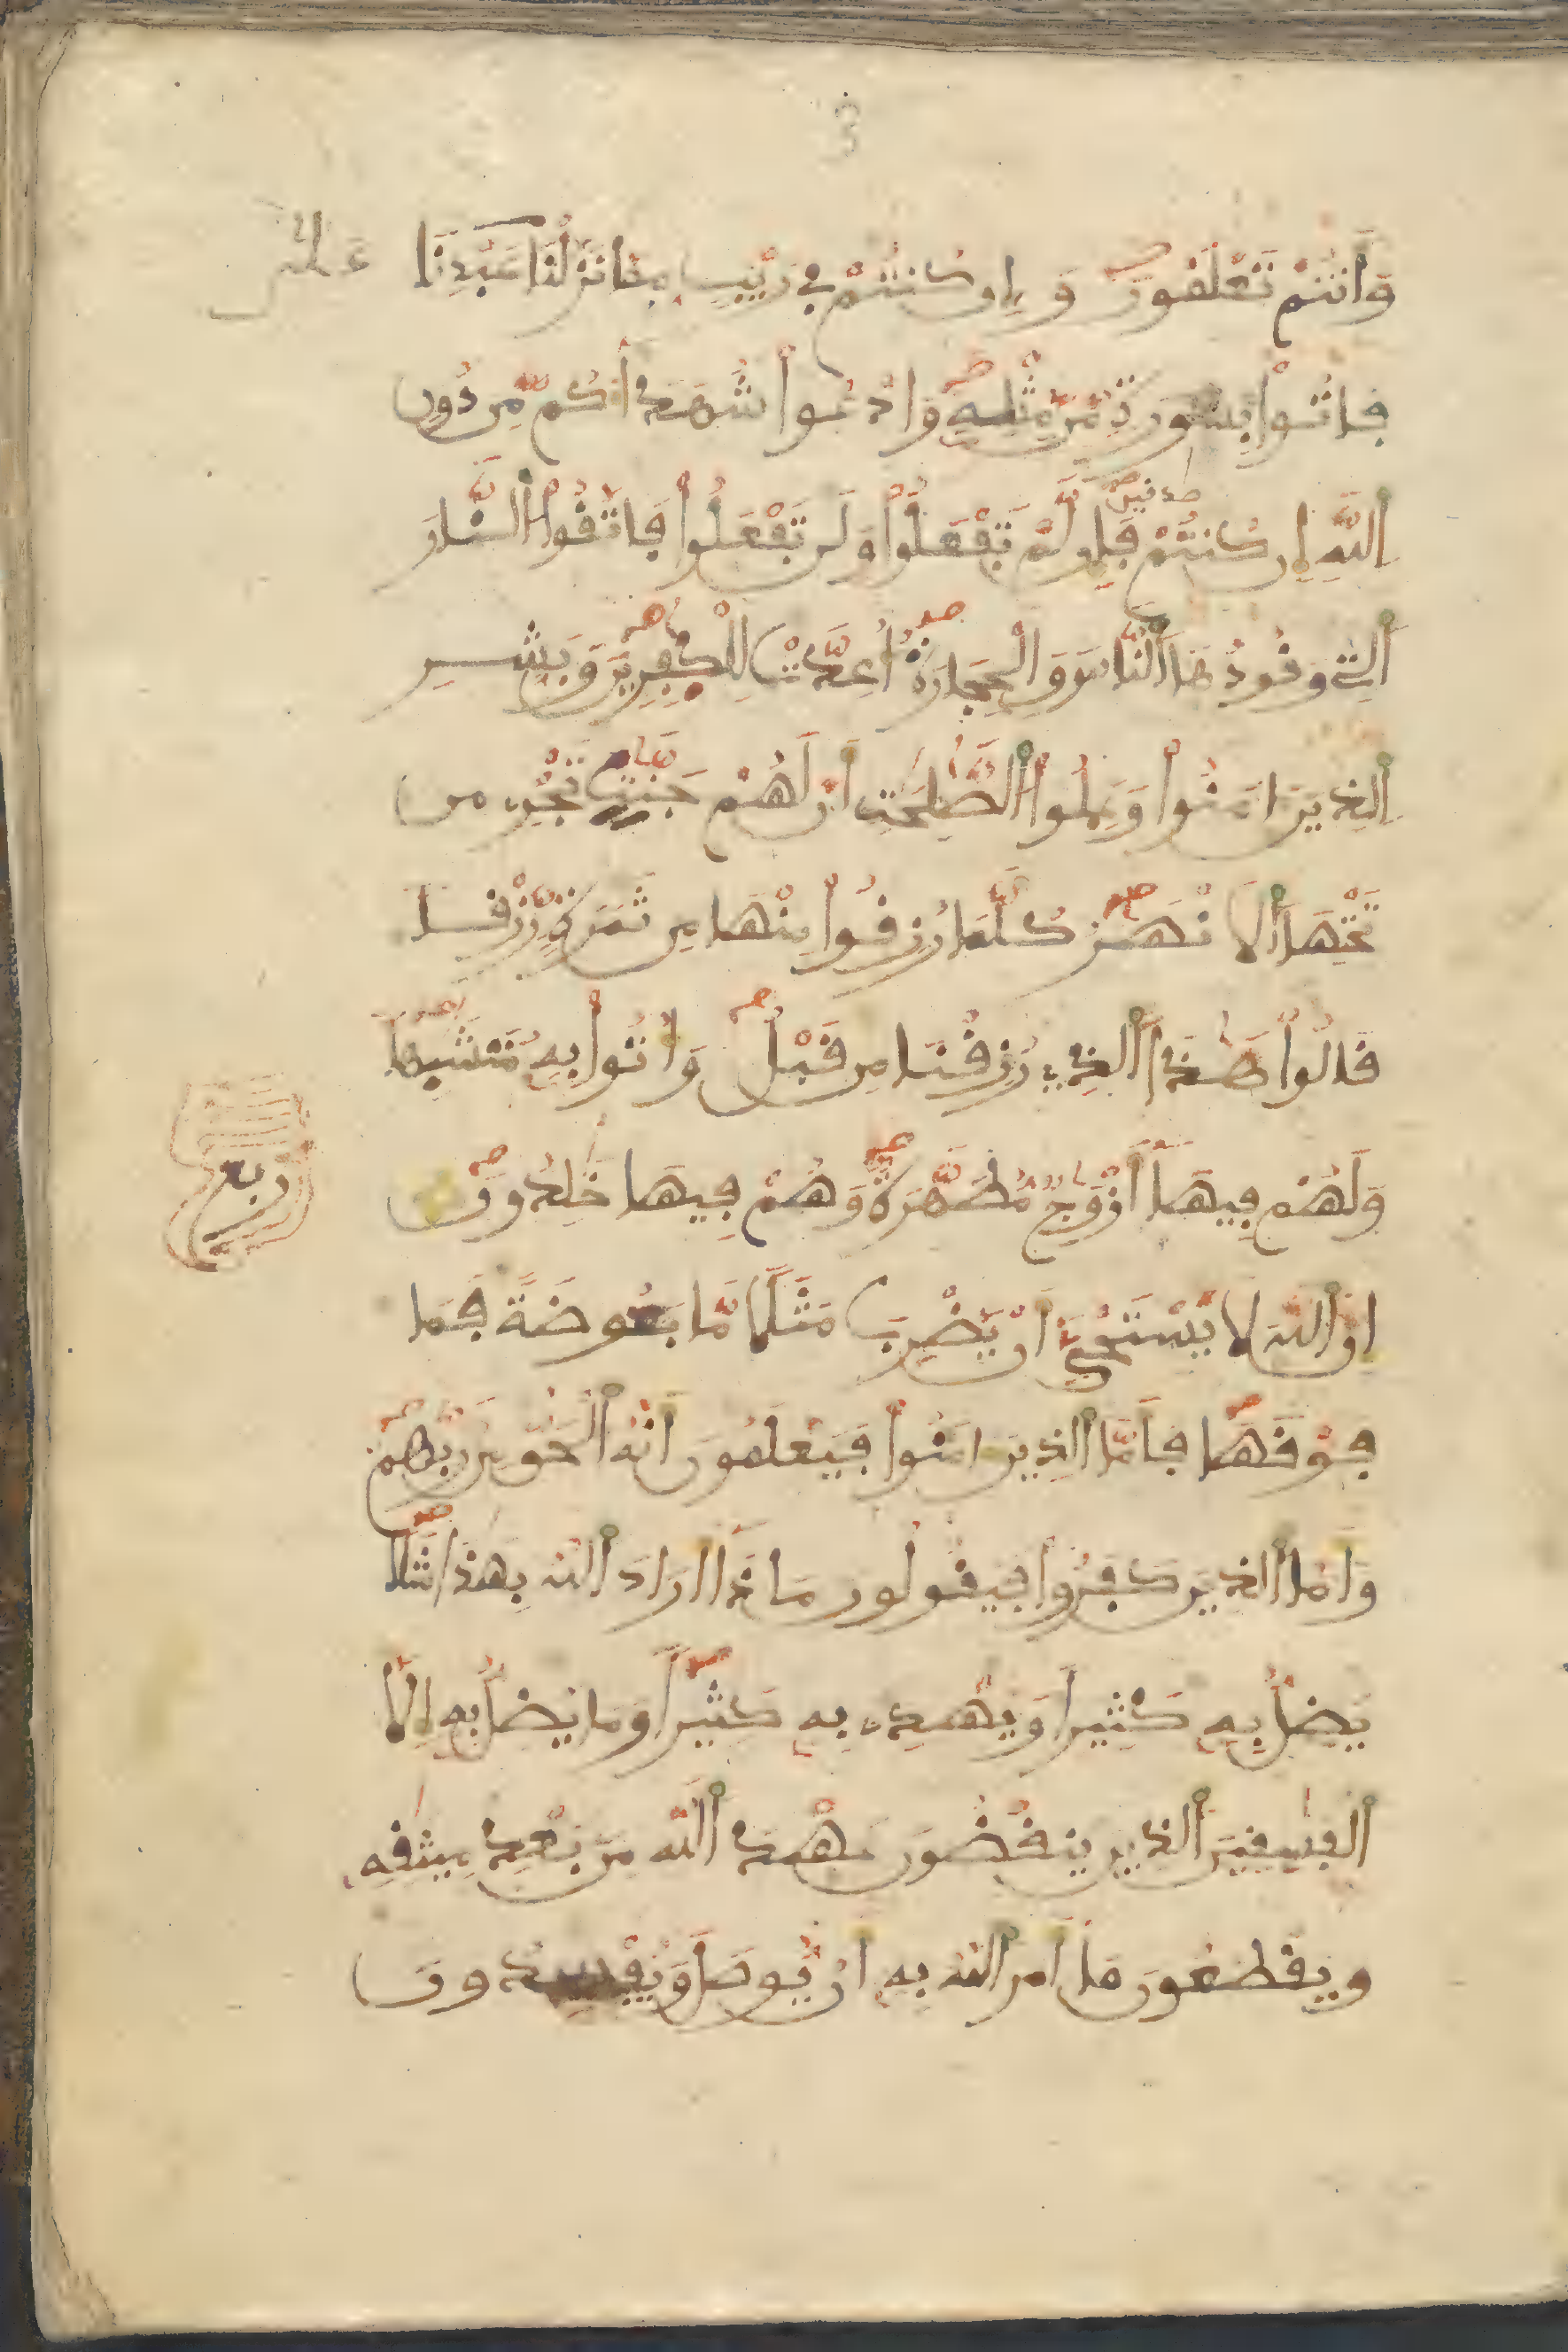 3
وَأَنتُمْ تَعْلَمُونَ وَإِن كُنتُمْ فِي رَيْبٍ مِمَّا نَزَّلْنَا عَبْدِنَا عَلَىٰ
فَاتُوا بِسُورَةٍ مِّن مِّثْلِهِ وَادْعُوا شُهَدَاءَكُم مِّن دُونِ
اِللَّهِ إِن كُنتُمْ صَٰدِقِينَ فَإِن لَّمْ تَفْعَلُوا وَلَن تَفْعَلُوا فَاتَّقُوا النَّارَ
اَلَّتِي وَقُودُهَا النَّاسُ وَالْحِجَارَةُ أُعِدَّتْ لِلْكَٰفِرِينَ وَبَشِّرِ
اِلَّذِينَ ءَامَنُوا وَعَمِلُوا الصَّٰلِحَٰتِ أَنَّ لَهُمْ جَنَّٰتٍ تَجْرِي مِن
تَحْتِهَا اَلَانْهَٰرُ كُلَّمَا رُزِقُوا مِنْهَا مِن ثَمَرَةٍ رِّزْقًا
قَالُوا هَٰذَا اَلَّذِي رُزِقْنَا مِن قَبْلُ وَأُتُوا بِهِ مُتَشَٰبِهًا
وَلَهُمْ فِيهَا أَزْوَٰجٌ مُّطَهَّرَةٌ وَهُمْ فِيهَا خَٰلِدُونَ
ربع
إِنَّ اَللَّهَ لَا يَسْتَحْيِي أَنْ يَّضْرِبَ مَثَلًا مَّا بَعُوضَةً فَمَا
فَوْقَهَا فَأَمَّا اَلَّذِينَ ءَامَنُوا فَيَعْلَمُونَ أَنَّهُ اُلْحَقُّ مِن رَّبِّهِمْ
وَأَمَّا اَلَّذِينَ كَفَرُوا فَيَقُولُونَ مَاذَا أَرَادَ اَللَّهُ بِهَٰذَا مَثَلًا
يُضِلُّ بِهِ كَثِيرًا وَيَهْدِي بِهِ كَثِيرًا وَمَا يُضِلُّ بِهِ إِلَّا
اَلْفَٰسِقِينَ اَلَّذِينَ يَنقُضُونَ عَهْدَ اَللَّهِ مِن بَعْدِ مِيثَٰقِهِ
وَيَقْطَعُونَ مَا أَمَرَ اَللَّهُ بِهِ أَنْ يُّوصَلَ وَيُفْسِدُونَ